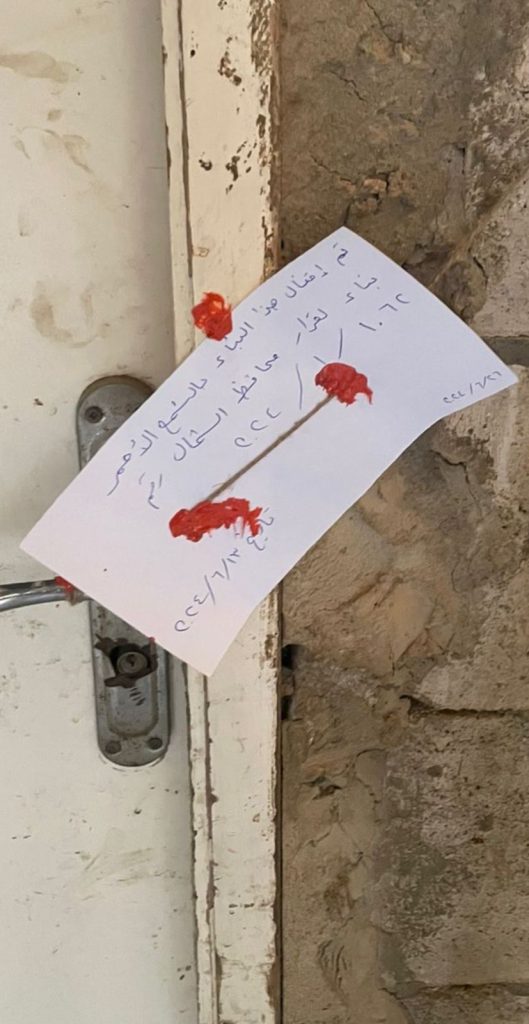 تم إقفال هذا البناء بالشمع الأحمر
بناء لقرار محافظ الشمال رقم
١٠٦٢ /
تاريخ ٢٠٢٤/٦/١٣
٢٠٢٤/٦/٢٦